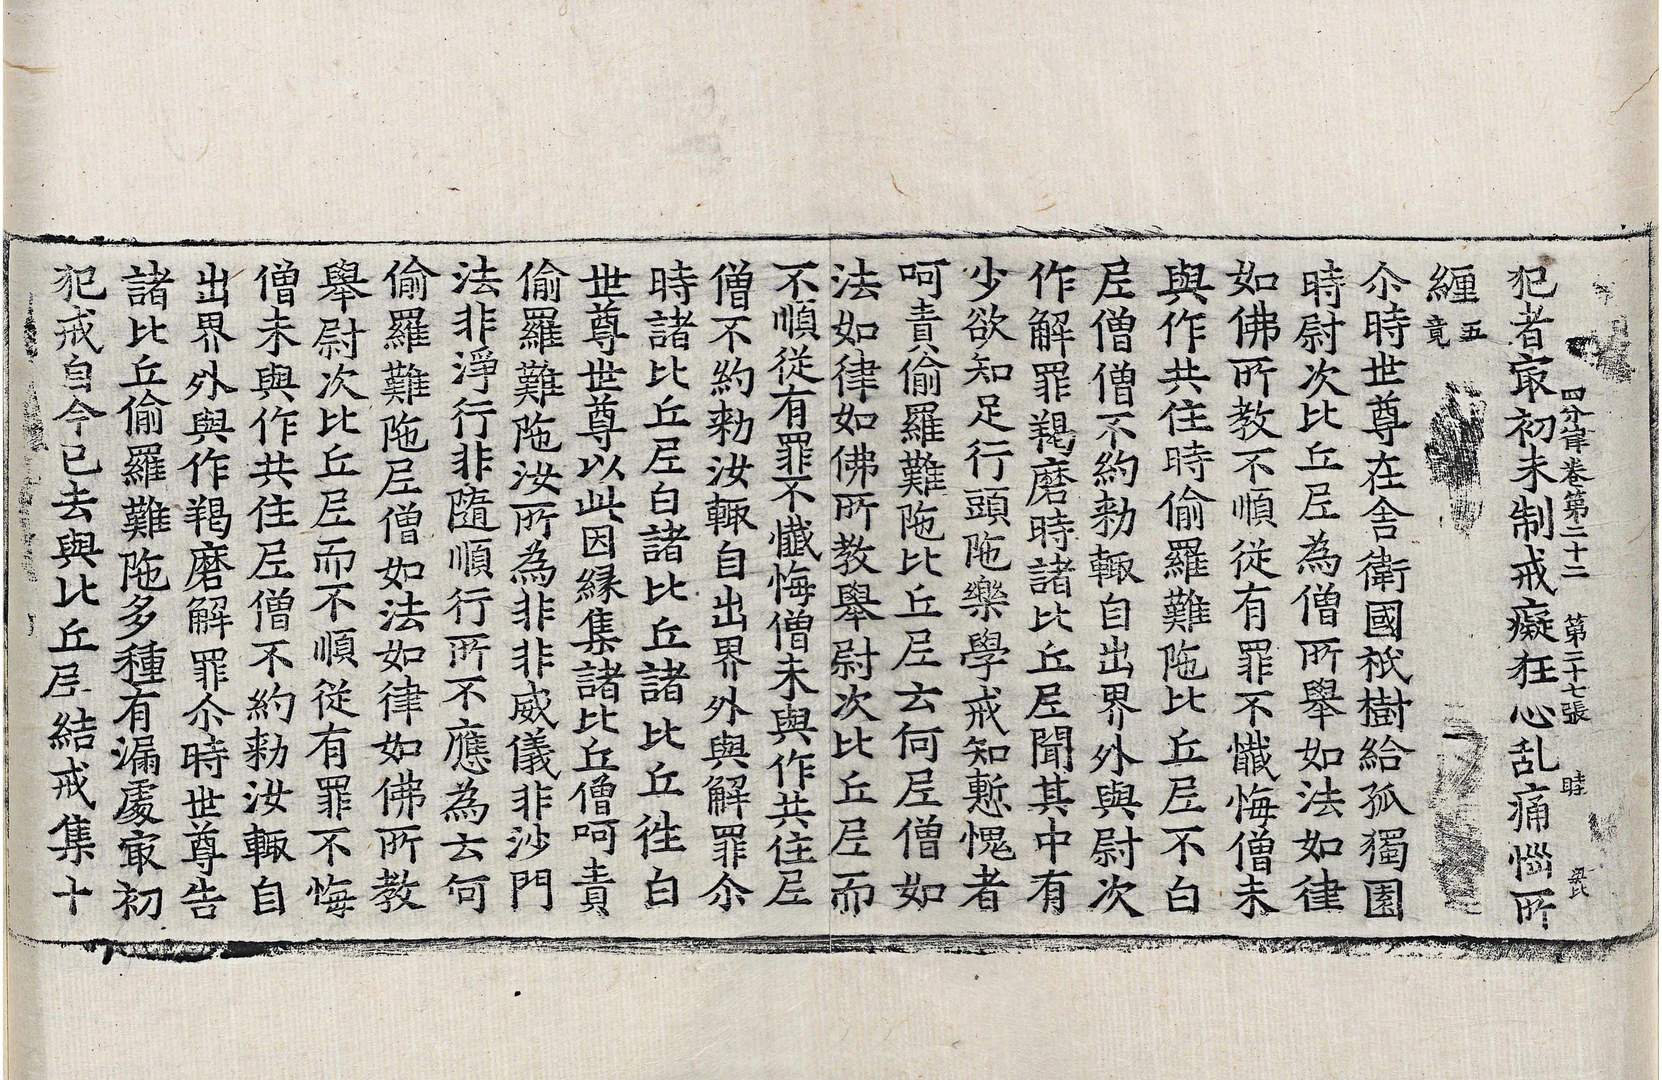 四分律卷第二十二 第三十七張 睦
犯者㝡初未制戒癡狂心乱痛惱所
纏五竟
尒時世尊在舎衛國祇樹給孤獨園
時尉次比丘𡰱為僧所舉如法如律
如佛所教不順從有罪不懺悔僧未
與作共住時偷羅難陁比丘𡰱不白
𡰱僧僧不約勑輙自出界外與尉次
作解罪羯磨時諸比丘𡰱聞其中有
少欲知足行頭陁樂學戒知慙愧者
呵責偷羅難陁比丘𡰱云何𡰱僧如
法如律如佛所教舉尉次比丘𡰱而
不順從有罪不懺悔僧未與作共住𡰱
僧不約勑汝輙自出界外與解罪尒
時諸比丘𡰱白諸比丘諸比丘徃白
世尊世尊以此因縁集諸比丘僧呵責
偷羅難陁汝所為非非威儀非沙門
法非淨行非隨順行所不應為云何
偷羅難陁𡰱僧如法如律如佛所教
舉尉次比丘𡰱而不順從有罪不悔
僧未與作共住𡰱僧不約勑汝輙自
出界外與作羯磨解罪尒時世尊告
諸比丘偷羅難陁多種有漏處㝡初
犯戒自今已去與比丘𡰱結戒集十